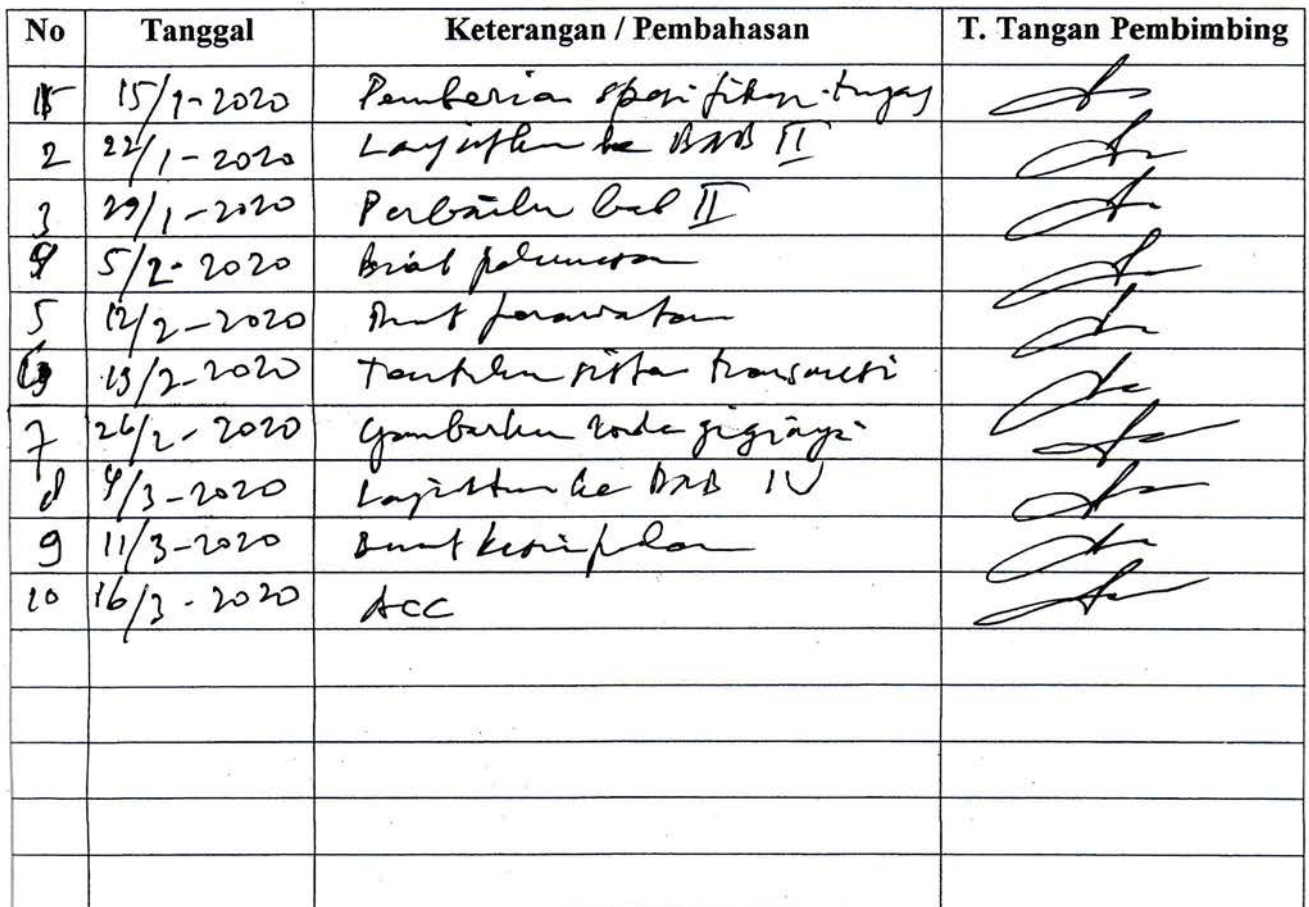 No Tanggal Keterangan / Pembahasan T. Tangan Pembimbing
15/1-2020 Pemberian spesifikasi tugas
2 22/1-2020 Lanjutkan ke BAB II
3 29/1-2020 Perbaiki bab II
4 5/2-2020 Buat
5 12/2-2020 Buat perawatan
6 19/2-2020 sistem transmisi
7 26/2-2020 Gambarkan roda giginya
8 4/3-2020 Lanjutkan ke BAB IV
9 11/3-2020 Buat kesimpulan
10 16/3-2020 ACC